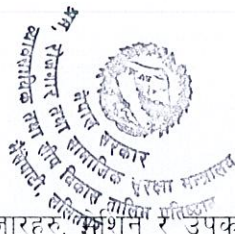 नेपाल सरकार
श्रम, रोजगार तथा सामाजिक सुरक्षा मन्त्रालय
व्यावसायिक तथा सीप विकास तालिम प्रतिष्ठान
भैंसेपाटी, ललितपुर
जारहरु, मेशिन र उपक